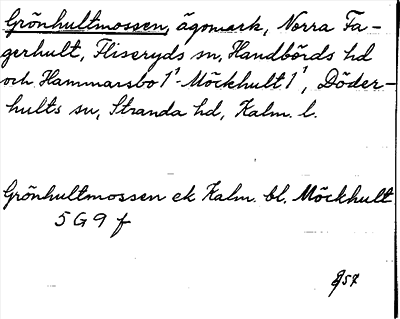 Grönhultmossen, ägomark, Norra Fa-
gerhult, Fliseryds sn, Handbörds hd
och Hammarsbo 1¹-Möckhult 1¹, Döder-
hults sn, Stranda hd, Kalm. l.
Grönhultmossen ek Kalm. bl. Möckhult
5 G 9 f